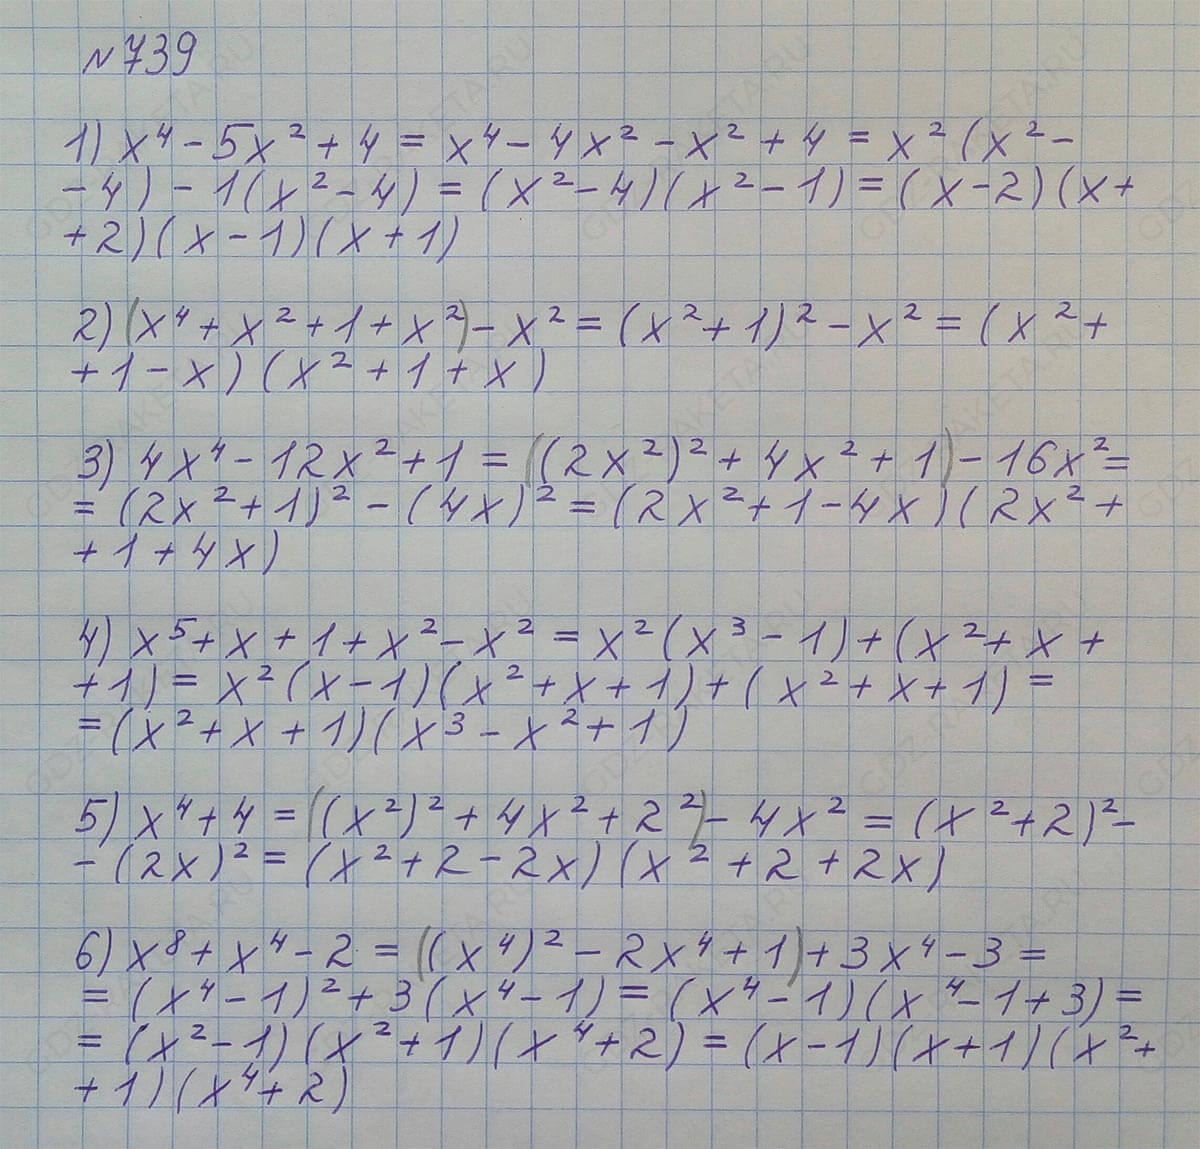 №739
1) x⁴ - 5x² + 4 = x⁴ - 4x² - x² + 4 = x² (x² -
- 4) - 1(x² - 4) = (x² - 4)(x² - 1) = (x - 2)(x +
+ 2)(x - 1)(x + 1)
2) (x⁴ + x² + 1 + x²) - x² = (x² + 1)² - x² = (x² +
+ 1 - x)(x² + 1 + x)
3) 4x⁴ - 12x² + 1 = ((2x²)² + 4x² + 1) - 16x² =
= (2x² + 1)² - (4x)² = (2x² + 1 - 4x)(2x² +
+ 1 + 4x)
4) x⁵ + x + 1 + x² - x² = x² (x³ - 1) + (x² + x +
+ 1) = x² (x - 1)(x² + x + 1) + (x² + x + 1) =
= (x² + x + 1)(x³ - x² + 1)
5) x⁴ + 4 = ((x²)² + 4x² + 2²) - 4x² = (x² + 2)² -
- (2x)² = (x² + 2 - 2x)(x² + 2 + 2x)
6) x⁸ + x⁴ - 2 = ((x⁴)² - 2x⁴ + 1) + 3x⁴ - 3 =
= (x⁴ - 1)² + 3(x⁴ - 1) = (x⁴ - 1)(x⁴ - 1 + 3) =
= (x² - 1)(x² + 1)(x⁴ + 2) = (x - 1)(x + 1)(x² +
+ 1)(x⁴ + 2)
GDZ-RAKETA.RU